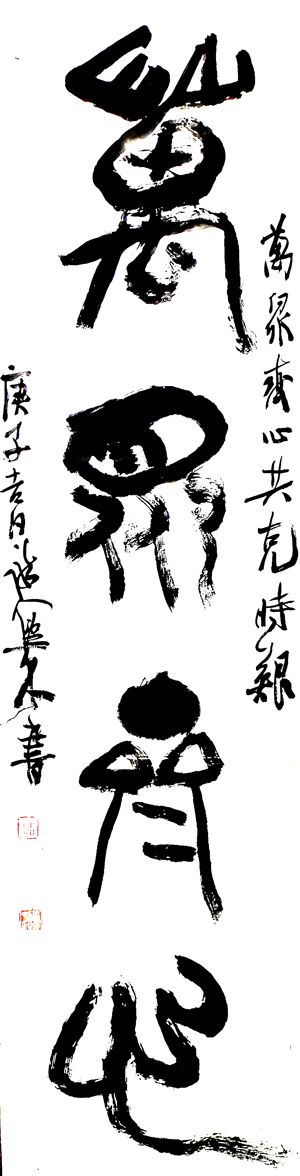 萬眾齊心
萬眾齊心共克時艱
庚子吉日
書